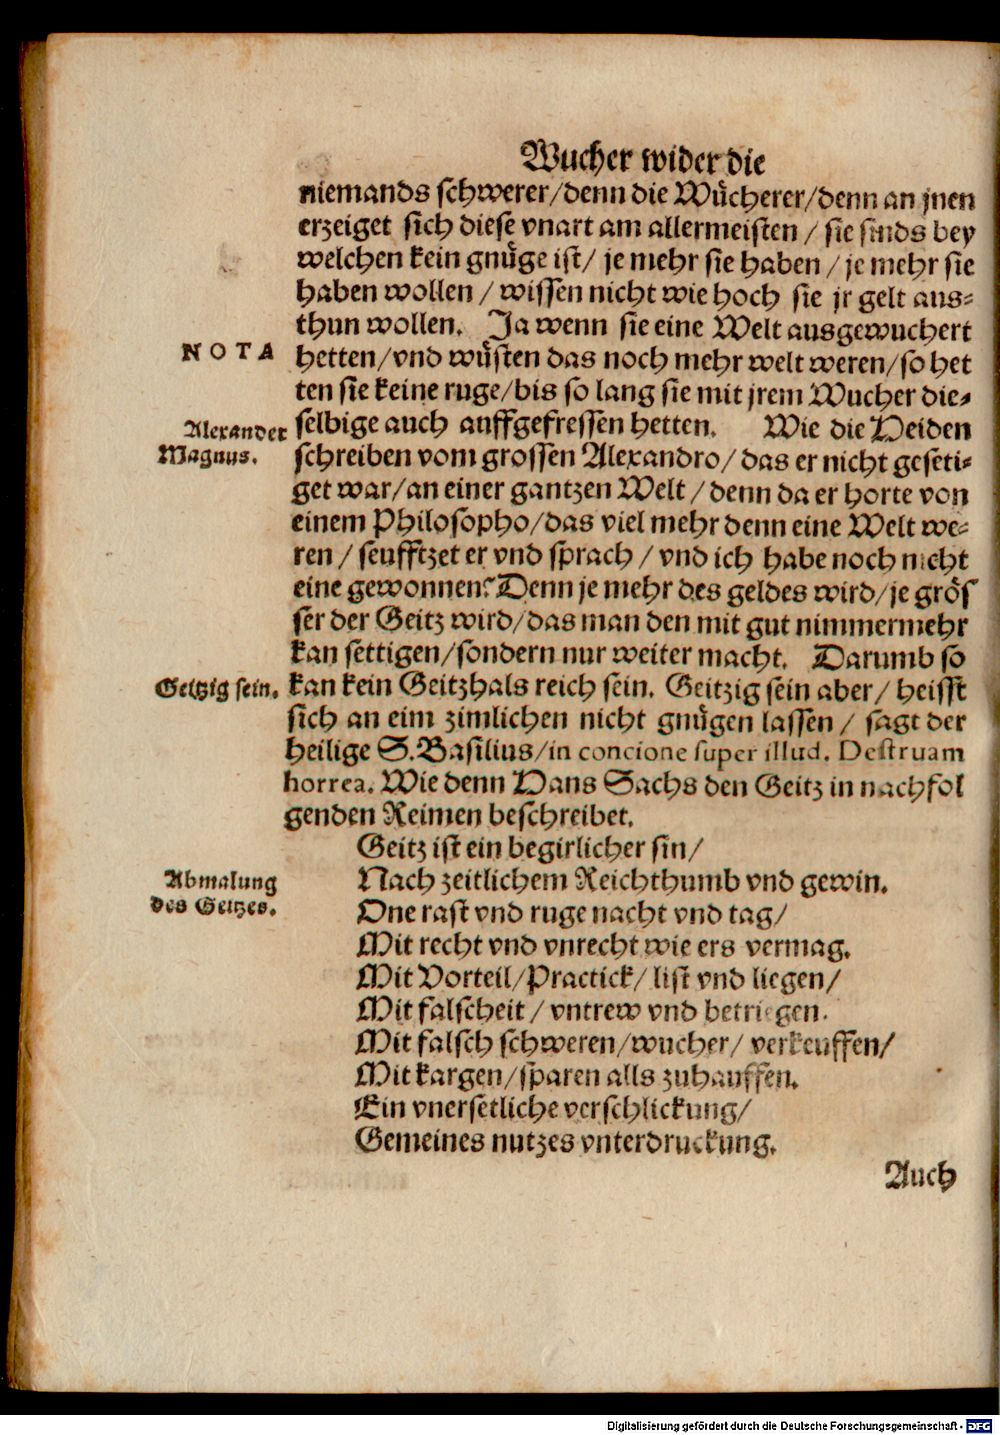 Wucher wider die
niemands schwerer/denn die Wůcherer/denn an jnen
erzeiget sich diese vnart am allermeisten / sie sinds bey
welchen kein gnůge ist/ je mehr sie haben / je mehr sie
haben wollen / wissen nicht wie hoch sie jr gelt aus-
thun wollen. Ja wenn sie eine Welt ausgewuchert
NOTA
hetten/vnd wůsten das noch mehr welt weren/so het
ten sie keine ruge/bis so lang sie mit jrem Wucher die-
Alexander
Magnus.
selbige auch auffgefressen hetten. Wie die Heiden
schreiben vom grossen Alexandro/ das er nicht geseti-
get war/an einer gantzen Welt / denn da er horte von
einem Philosopho/das viel mehr denn eine Welt we-
ren / seufftzet er vnd sprach / vnd ich habe noch nicht
eine gewonnen? Denn je mehr des geldes wird/je grös
ser der Geitz wird/das man den mit gut nimmermehr
kan settigen/sondern nur weiter macht. Darumb so
Geitzig sein.
kan kein Geitzhals reich sein. Geitzig sein aber/ heisst
sich an eim zimlichen nicht gnůgen lassen / sagt der
heilige S.Basilius/in concione super illud. Destruam
horrea. Wie denn Hans Sachs den Geitz in nachfol
genden Reimen beschreibet.
Geitz ist ein begirlicher sin/
Abmalung
des Geitzes.
Nach zeitlichem Reichthumb vnd gewin.
One rast vnd ruge nacht vnd tag/
Mit recht vnd vnrecht wie ers vermag.
Mit Vorteil/Practick/ list vnd liegen/
Mit falscheit / vntrew vnd betriegen.
Mit falsch schweren/wucher/ verkeuffen/
Mit kargen/sparen alls zuhauffen.
Ein vnersetliche verschlickung/
Gemeines nutzes vnterdruckung.
Auch
Digitalisierung gefördert durch die Deutsche Forschungsgemeinschaft - DFG